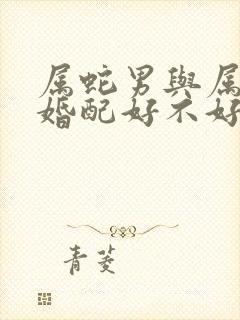 属蛇男與属
婚配好不好
青菱